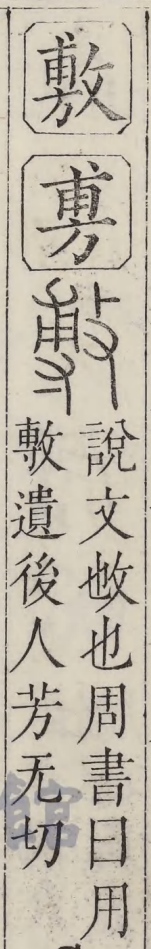 敷
旉
敷
說文𢻱也周書曰用
敷遺後人芳无切
館